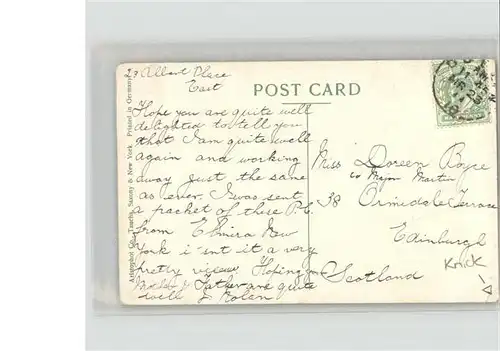 23 Albert Place
East
POST CARD
Hope you are quite well
delighted to tell you
that I am quite well
again and working
away just the same
as ever. I was sent
a packet of these P.C.
from Elmira New
York i'snt it a very
pretty view. Hoping
Father are quite
well J Nolan
Miss Doreen
c/o Major Martin
38 Ormidale Terrace
Edinburgh
Scotland
Knick
Aristophot Co., Taucha, Saxony & New York. Printed in Germany